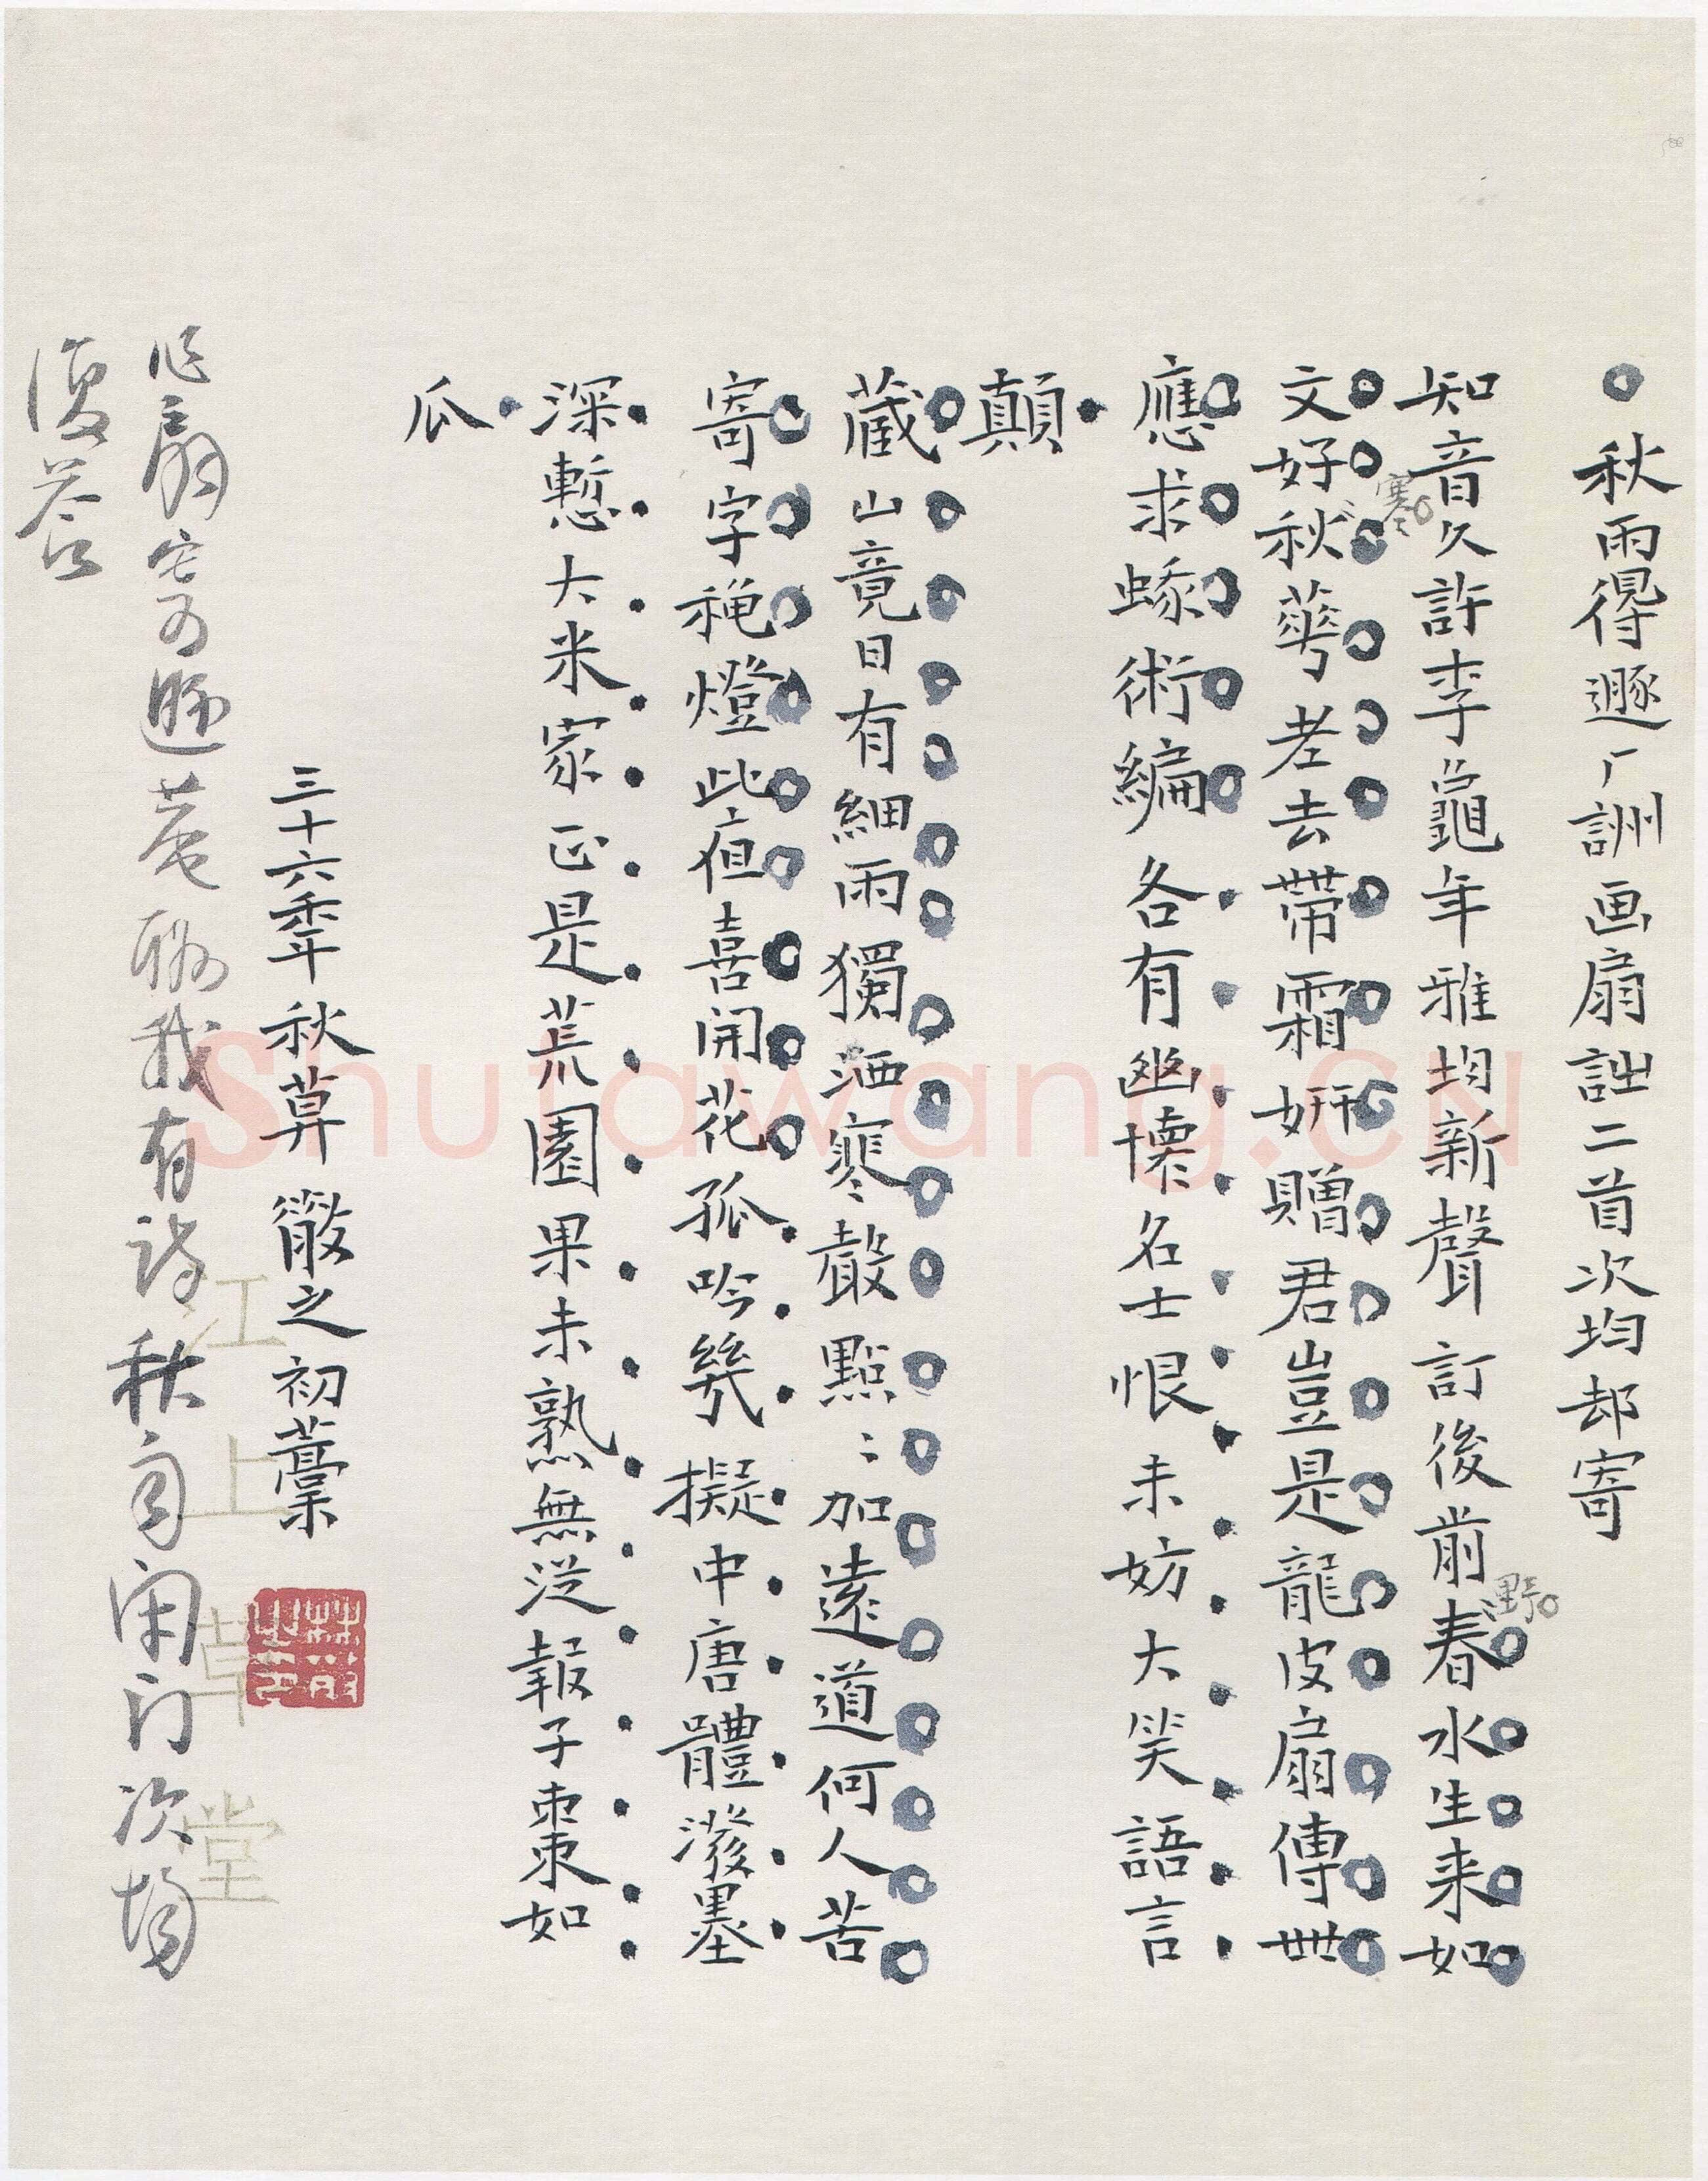 秋雨得遯厂詶画扇詘二首次均却寄
知音久許李龜年雅均新聲訂後前春水生来如
野
文好秋蕚老去帶霜妍贈君豈是龍皮扇傳世
寒
應求蝝術編各有幽懐名士恨未妨大笑語言
顛
蔵山竟日有細雨獨洒寒聲點〻加遠道何人苦
寄字秾燈此夜喜開花孤吟幾擬中唐體潑墨
深慙大米家正是荒園果未熟無從報子棗如
瓜
三十六年秋算 散之初藁
作扇寄遯菴酬我有詩秋雨閉门次均
復答
江上草堂
Shufawang.CN